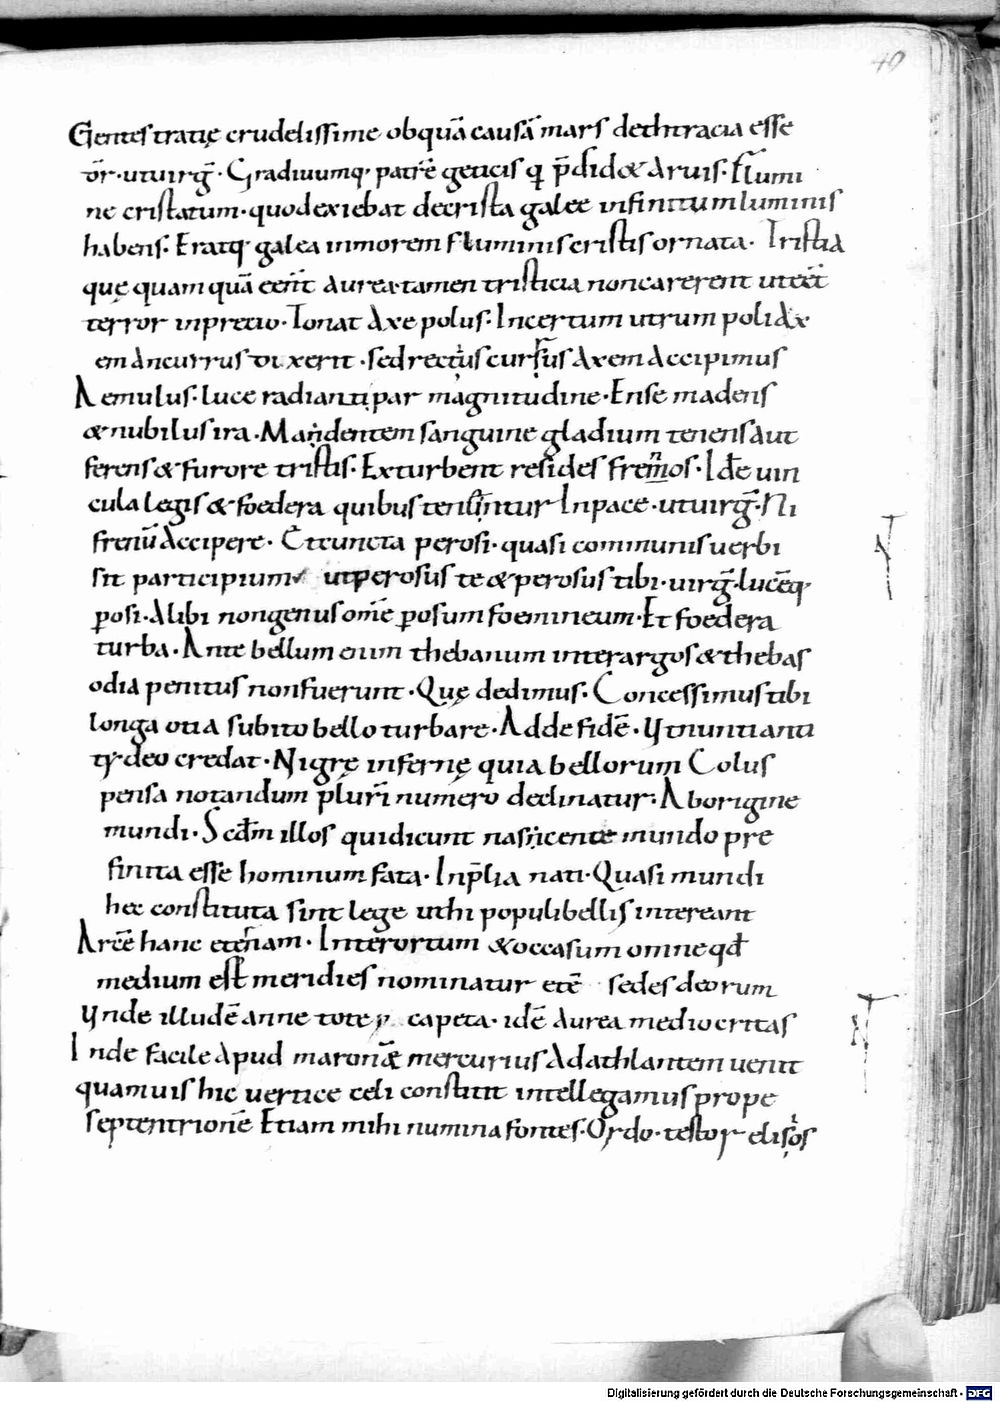 40
Gentes tratię crudelissime obquā causā mars dethtracia esse
dr̄·utuirḡ· Gradiuumq· patrē geticis q p̄did& aruis· Flumi
ne cristatum·quodexiebat decrista galee infinitum luminis
habens· Eratq· galea inmorem fluminis cristis ornata· Tristia
quę quam quā eent̄ aurea·tamen tristicia noncarerent uteēt
terror inprecio· Tonat axe polus· Incertum utrum poli ax
em ancurrus dixerit·sed rectus cursus axem accipimus
Aemulus·luce radianti par magnitudine·Ense madens
&nubilus ira·Mandentem sanguine gladium tenens aut
ferens & furore tristis· Exturbent resides frenos· Idē uin
cula legis & foedera quibus tenentur Inpace·utuirḡ·Ni
frenū accipere· Et cuncta perosi·quasi communis uerbi
sit participium utperosus te & perosus tibi·uirḡ·lucēq·
perosi·alibi nongenus om̄e perosum foemineum·Et foedera
turba·Ante bellum enim thebanum interargos & thebas
odia penitus nonfuerunt·Quę dedimus·Concessimus tibi
longa otia subito bello turbare·Adde fidē·Vtnuntianti
tydeo credat·Nigrę infernę quia bellorum Colus
pensa notandum plurī numero declinatur·Aborigine
mundi·Scdm̄ illos quidicunt nascente mundo pre
finita esse hominum fata·Inp̄lia nati·Quasi mundi
hec constituta sint lege uthi populi bellis intereant
Arcē hanc eternam·Interortum &occasum omne qd̄
medium est meridies nominatur etē sedes deorum
Vnde illudē anne tote capeta·idē aurea mediocritas
Inde facile apud maronē mercurius adathlantem uenit
quamuis hic uertice celi constitit intellegamus prope
septentrionē Etiam mihi numina fontes·Ordo·testor elisos
Digitalisierung gefördert durch die Deutsche Forschungsgemeinschaft - DFG